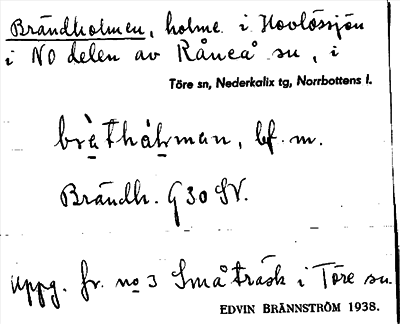 Brändholmen, holme i Hovlössjön
i NO delen av Råneå sn, i
Töre sn, Nederkalix tg, Norrbottens l.
bràthålmαn, bf. m.
Brändh. G 30 SV.
Uppg. fr. no 3 Småträsk i Töre sn.
EDVIN BRÄNNSTRÖM 1938.